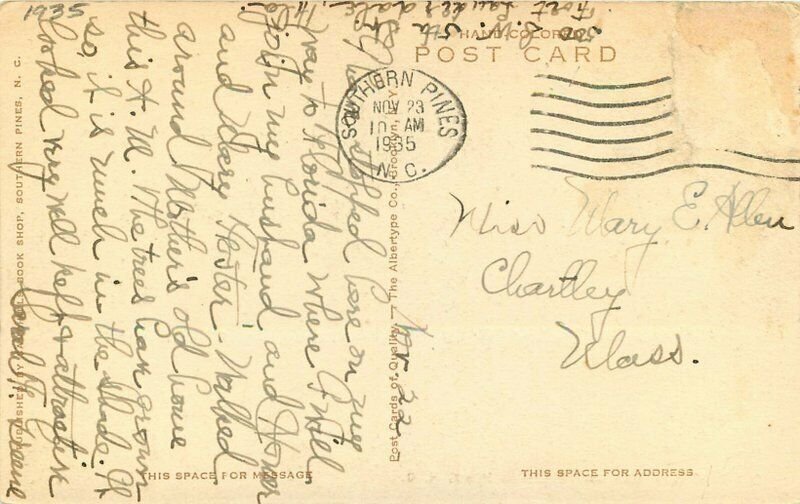 1935
500 S.W. 5th St.
Fort Lauderdale. Fla.
HAND-COLORED
POST CARD
SOUTHERN PINES
NOV 23
10 AM
1935
N.C.
Nov. 22
Have stopped here on my
way to Florida where I will
join my husband and
and Mary Hester - Walked
around Mother's old home
this A.M. The trees have grown
so, it is much in the shade. It
looked very well kept & attractive
Miss Mary E. Allen
Chartley
Mass.
BOOK SHOP, SOUTHERN PINES, N. C.
Post Cards of Quality. — The Albertype Co., Brooklyn, N. Y.
THIS SPACE FOR MESSAGE
THIS SPACE FOR ADDRESS